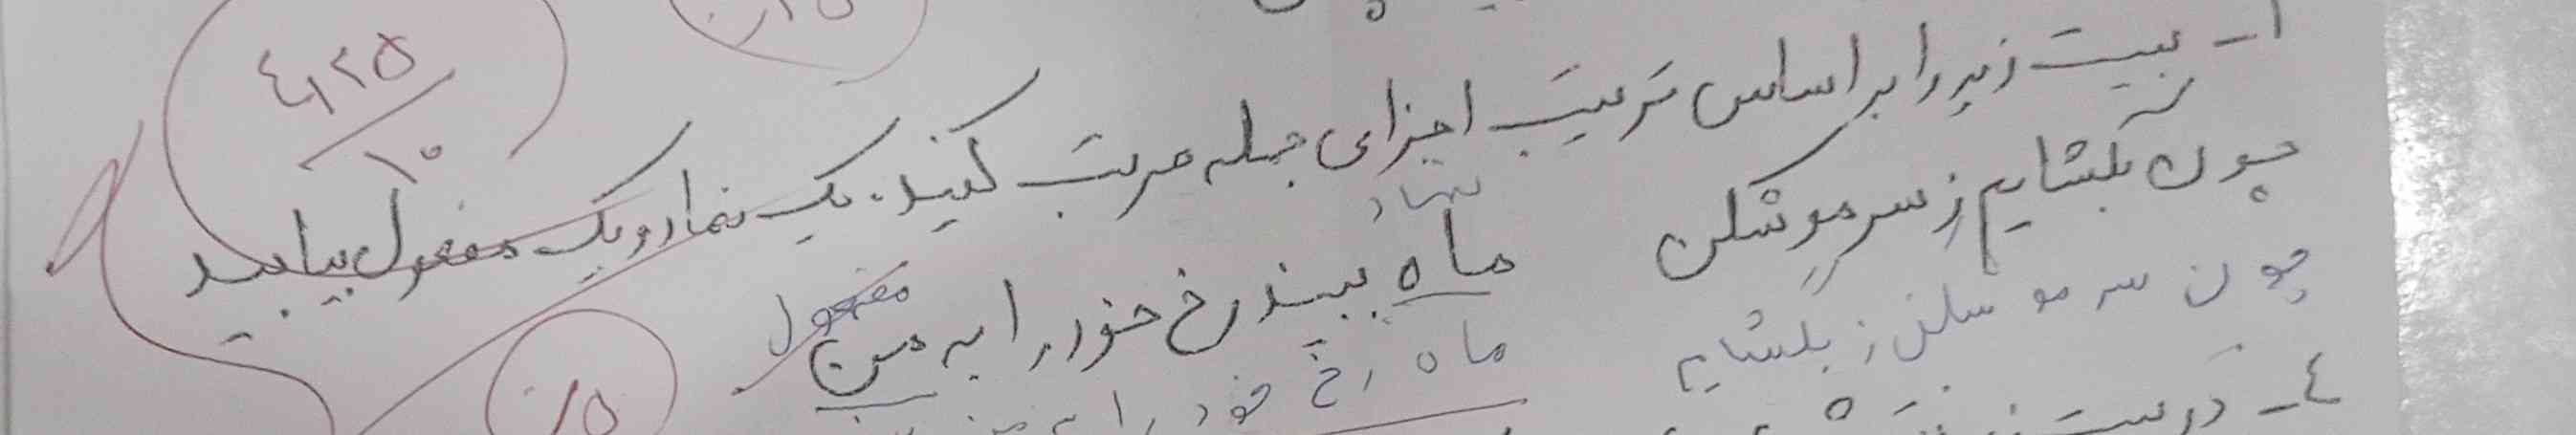 ۱- بیت زیر را بر اساس ترتیب اجزای جمله مرتب کنید. یک نهاد و یک مفعول بیابید
چون بگشایم ز سر مو شکن
نهاد
ماه ببیند رخ خود را به من
مفعول
چون سر مو شکن ز بگشایم
ماه رخ خود را به من
۴- درست
۴,۲۵
۱۰
۰/۵